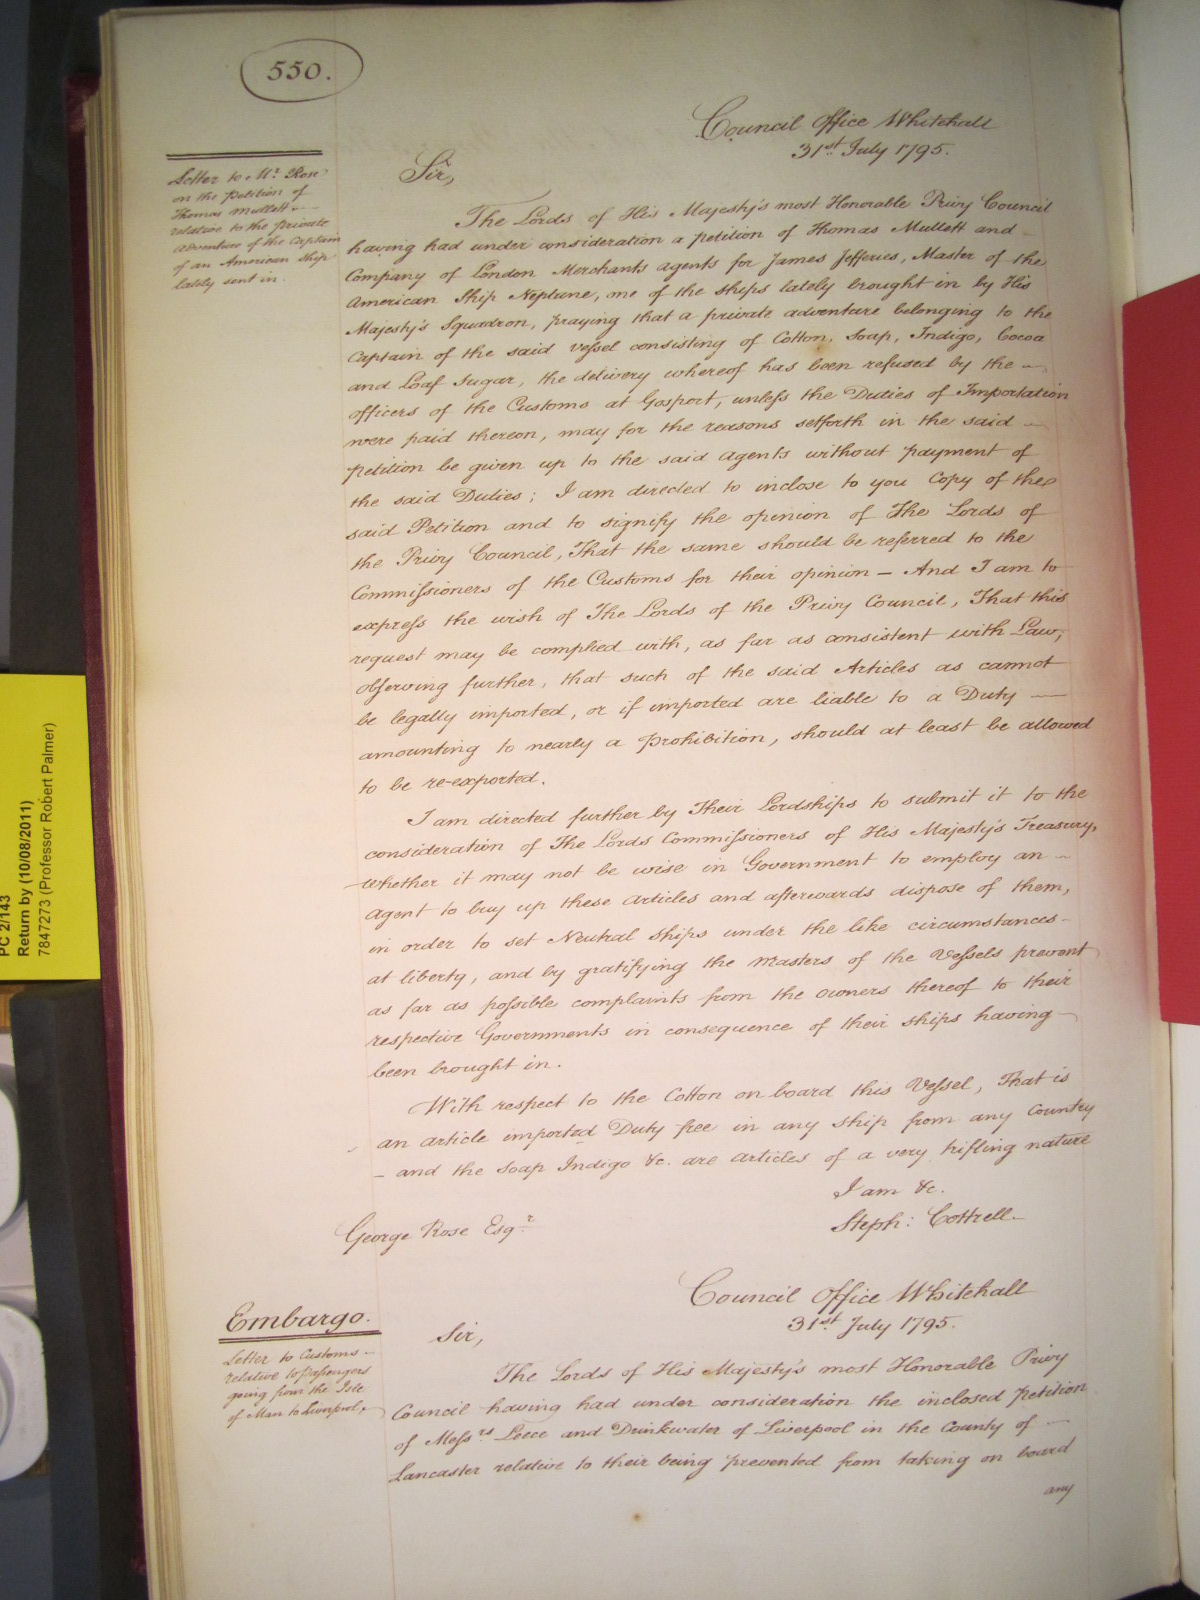 550.
Council Office Whitehall
31st July 1795.
Letter to Mr. Rose
on the Petition of
Thomas Mullett
relative to the private
adventure of the Captain
of an American Ship
lately sent in
Sir,
The Lords of His Majesty's most Honorable Privy Council
having had under consideration a petition of Thomas Mullett and
Company of London Merchants agents for James Jefferies, Master of the
American Ship Neptune, one of the ships lately brought in by His
Majesty's Squadron, praying that a private adventure belonging to the
Captain of the said Vessel consisting of Cotton, Soap, Indigo, Cocoa
and Loaf Sugar, the delivery whereof has been refused by the
officers of the Customs at Gosport, unless the Duties of Importation
were paid thereon, may for the reasons setforth in the said
petition be given up to the said Agents without payment of
the said Duties; I am directed to inclose to you Copy of the
said Petition and to signify the opinion of The Lords of
the Privy Council, That the same should be referred to the
Commissioners of the Customs for their opinion – And I am to
express the wish of The Lords of the Privy Council, That this
request may be complied with, as far as consistent with Law;
observing further, that such of the said Articles as cannot
be legally imported, or if imported are liable to a Duty —
amounting to nearly a Prohibition, should at least be allowed
to be re-exported.
I am directed further by Their Lordships to submit it to the
consideration of The Lords Commissioners of His Majesty's Treasury,
whether it may not be wise in Government to employ an
Agent to buy up these Articles and afterwards dispose of them,
in order to set Neutral Ships under the like circumstances
at liberty, and by gratifying the Masters of the Vessels prevent
as far as possible complaints from the owners thereof to their
respective Governments in consequence of their ships having
been brought in.
With respect to the Cotton on board this Vessel, That is
an article imported Duty free in any ship from any Country
– and the Soap Indigo &c. are articles of a very trifling nature
I am &c.
Steph: Cottrell
George Rose Esqr.
Council Office Whitehall
31st July 1795.
Embargo.
Letter to Customs
relative to passengers
going from the Isle
of Man to Liverpool,
Sir,
The Lords of His Majesty's most Honorable Privy
Council having had under consideration the inclosed petition
of Messrs Leece and Drinkwater of Liverpool in the County of
Lancaster relative to their being prevented from taking on board
any
PC 2/143
Return by (10/08/2011)
7847273 (Professor Robert Palmer)